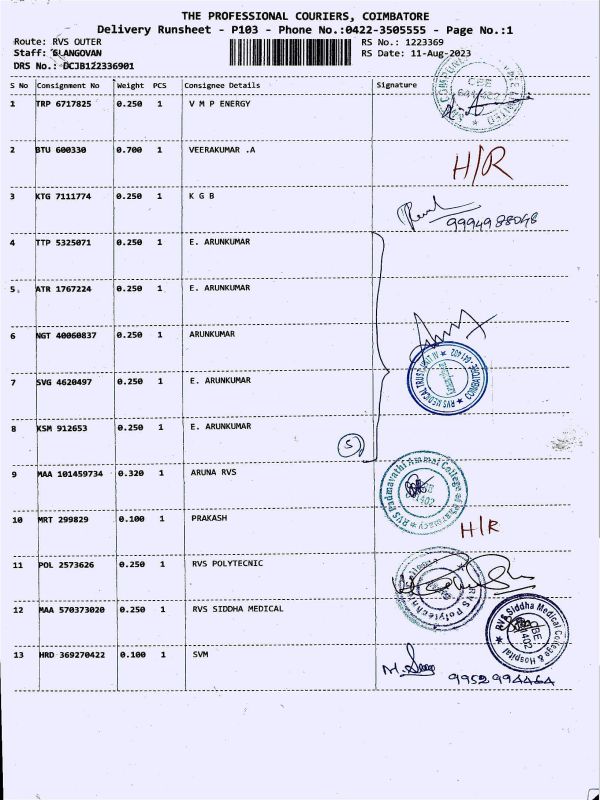 THE PROFESSIONAL COURIERS, COIMBATORE
Delivery Runsheet - P103 - Phone No.:0422-3505555 - Page No.:1
Route: RVS OUTER RS No.: 1223369
Staff: ELANGOVAN RS Date: 11-Aug-2023
DRS No.: DCJB122336901
S No Consignment No Weight PCS Consignee Details Signature
1 TRP 6717825 0.250 1 V M P ENERGY
2 BTU 600330 0.700 1 VEERAKUMAR .A H/R
3 KTG 7111774 0.250 1 K G B
9994988048
4 TTP 5325071 0.250 1 E. ARUNKUMAR
5 ATR 1767224 0.250 1 E. ARUNKUMAR
6 NGT 40060837 0.250 1 ARUNKUMAR
7 SVG 4620497 0.250 1 E. ARUNKUMAR
RVS MEDICAL TRUST COIMBATORE-641402
8 KSM 912653 0.250 1 E. ARUNKUMAR
5
9 MAA 101459734 0.320 1 ARUNA RVS
RVS Padmavathi Ammal College of Pharmacy
10 MRT 299829 0.100 1 PRAKASH H/R
11 POL 2573626 0.250 1 RVS POLYTECNIC
RVS Polytechnic College
12 MAA 570373020 0.250 1 RVS SIDDHA MEDICAL
RVS Siddha Medical College & Hospital
13 HRD 369270422 0.100 1 SVM
9952994464